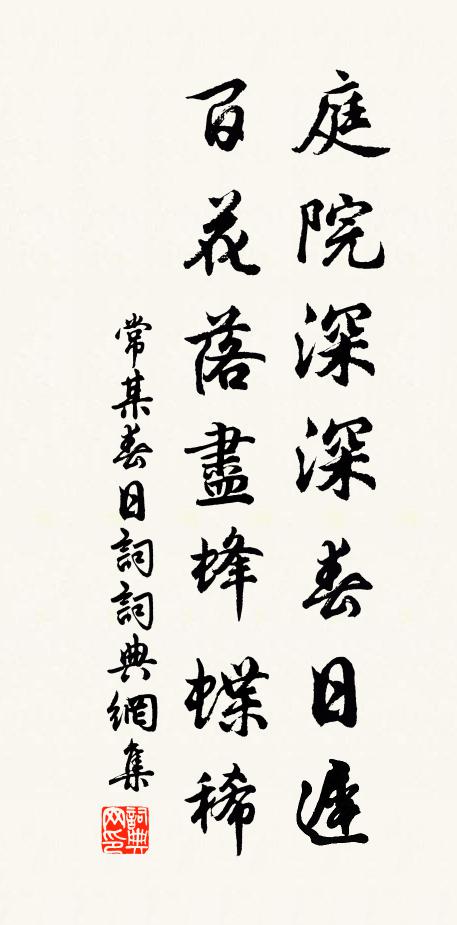 庭院深深春日遲
百花落盡蜂蝶稀
常某春日詞詞典網集
詞典网印